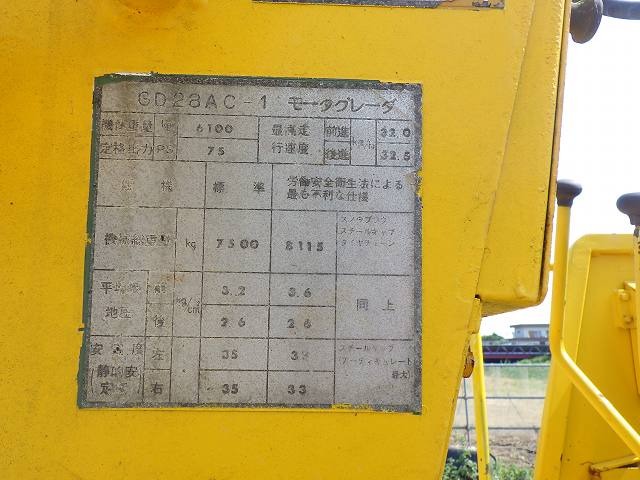 GD28AC-1 モータグレーダ
機体重量 kg 6100 最高走行速度 前進 km/h 32.0
定格出力 PS 75 後進 32.5
仕様 標準 労働安全衛生法による最も不利な仕様
機械総重量 kg 7500 8115 スノウプラウ スチールキャブ タイヤチェーン
平均接地圧 前 kg/cm² 3.2 3.6 同上
後 2.6 2.6
安定度 静的安定 左 35 スチールキャブ (アーティキュレート最大)
右 35 33